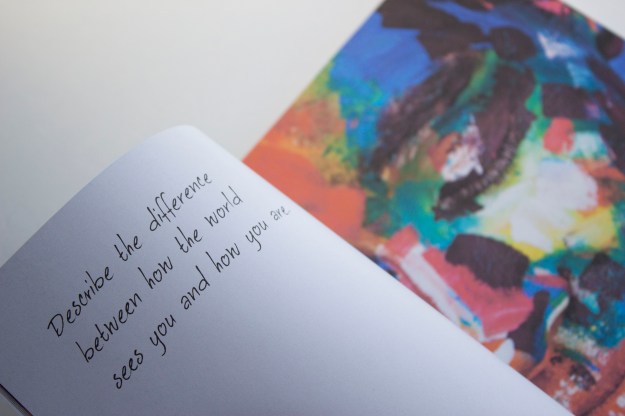 Describe the difference
between how the world
sees you and how you are